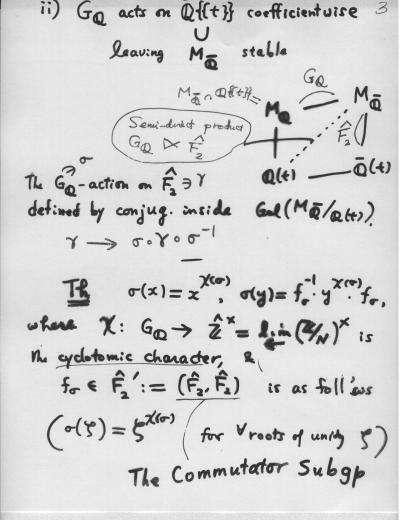 3
ii) G_Q acts on Q̄{{t}} coefficientwise
∪
leaving M_Q̄ stable
M_Q̄ ∩ Q{{t}} = M_Q G_Q M_Q̄
Semi-direct product
G_Q ⋉ F̂_2
F̂_2
Q(t) Q̄(t)
σ
The G_Q-action on F̂_2 ∋ γ
defined by conjug. inside Gal(M_Q̄/Q(t)).
γ → σ∘γ∘σ^{-1}
Th σ(x) = x^{χ(σ)}, σ(y) = f_σ^{-1}·y^{χ(σ)}·f_σ,
where χ: G_Q → Ẑ^× = lim← (Z/N)^× is
the cyclotomic character, &
f_σ ∈ F̂_2' := (F̂_2, F̂_2) is as foll'ws
(σ(ζ) = ζ^{χ(σ)} for ∀ roots of unity ζ)
The Commutator Subgp